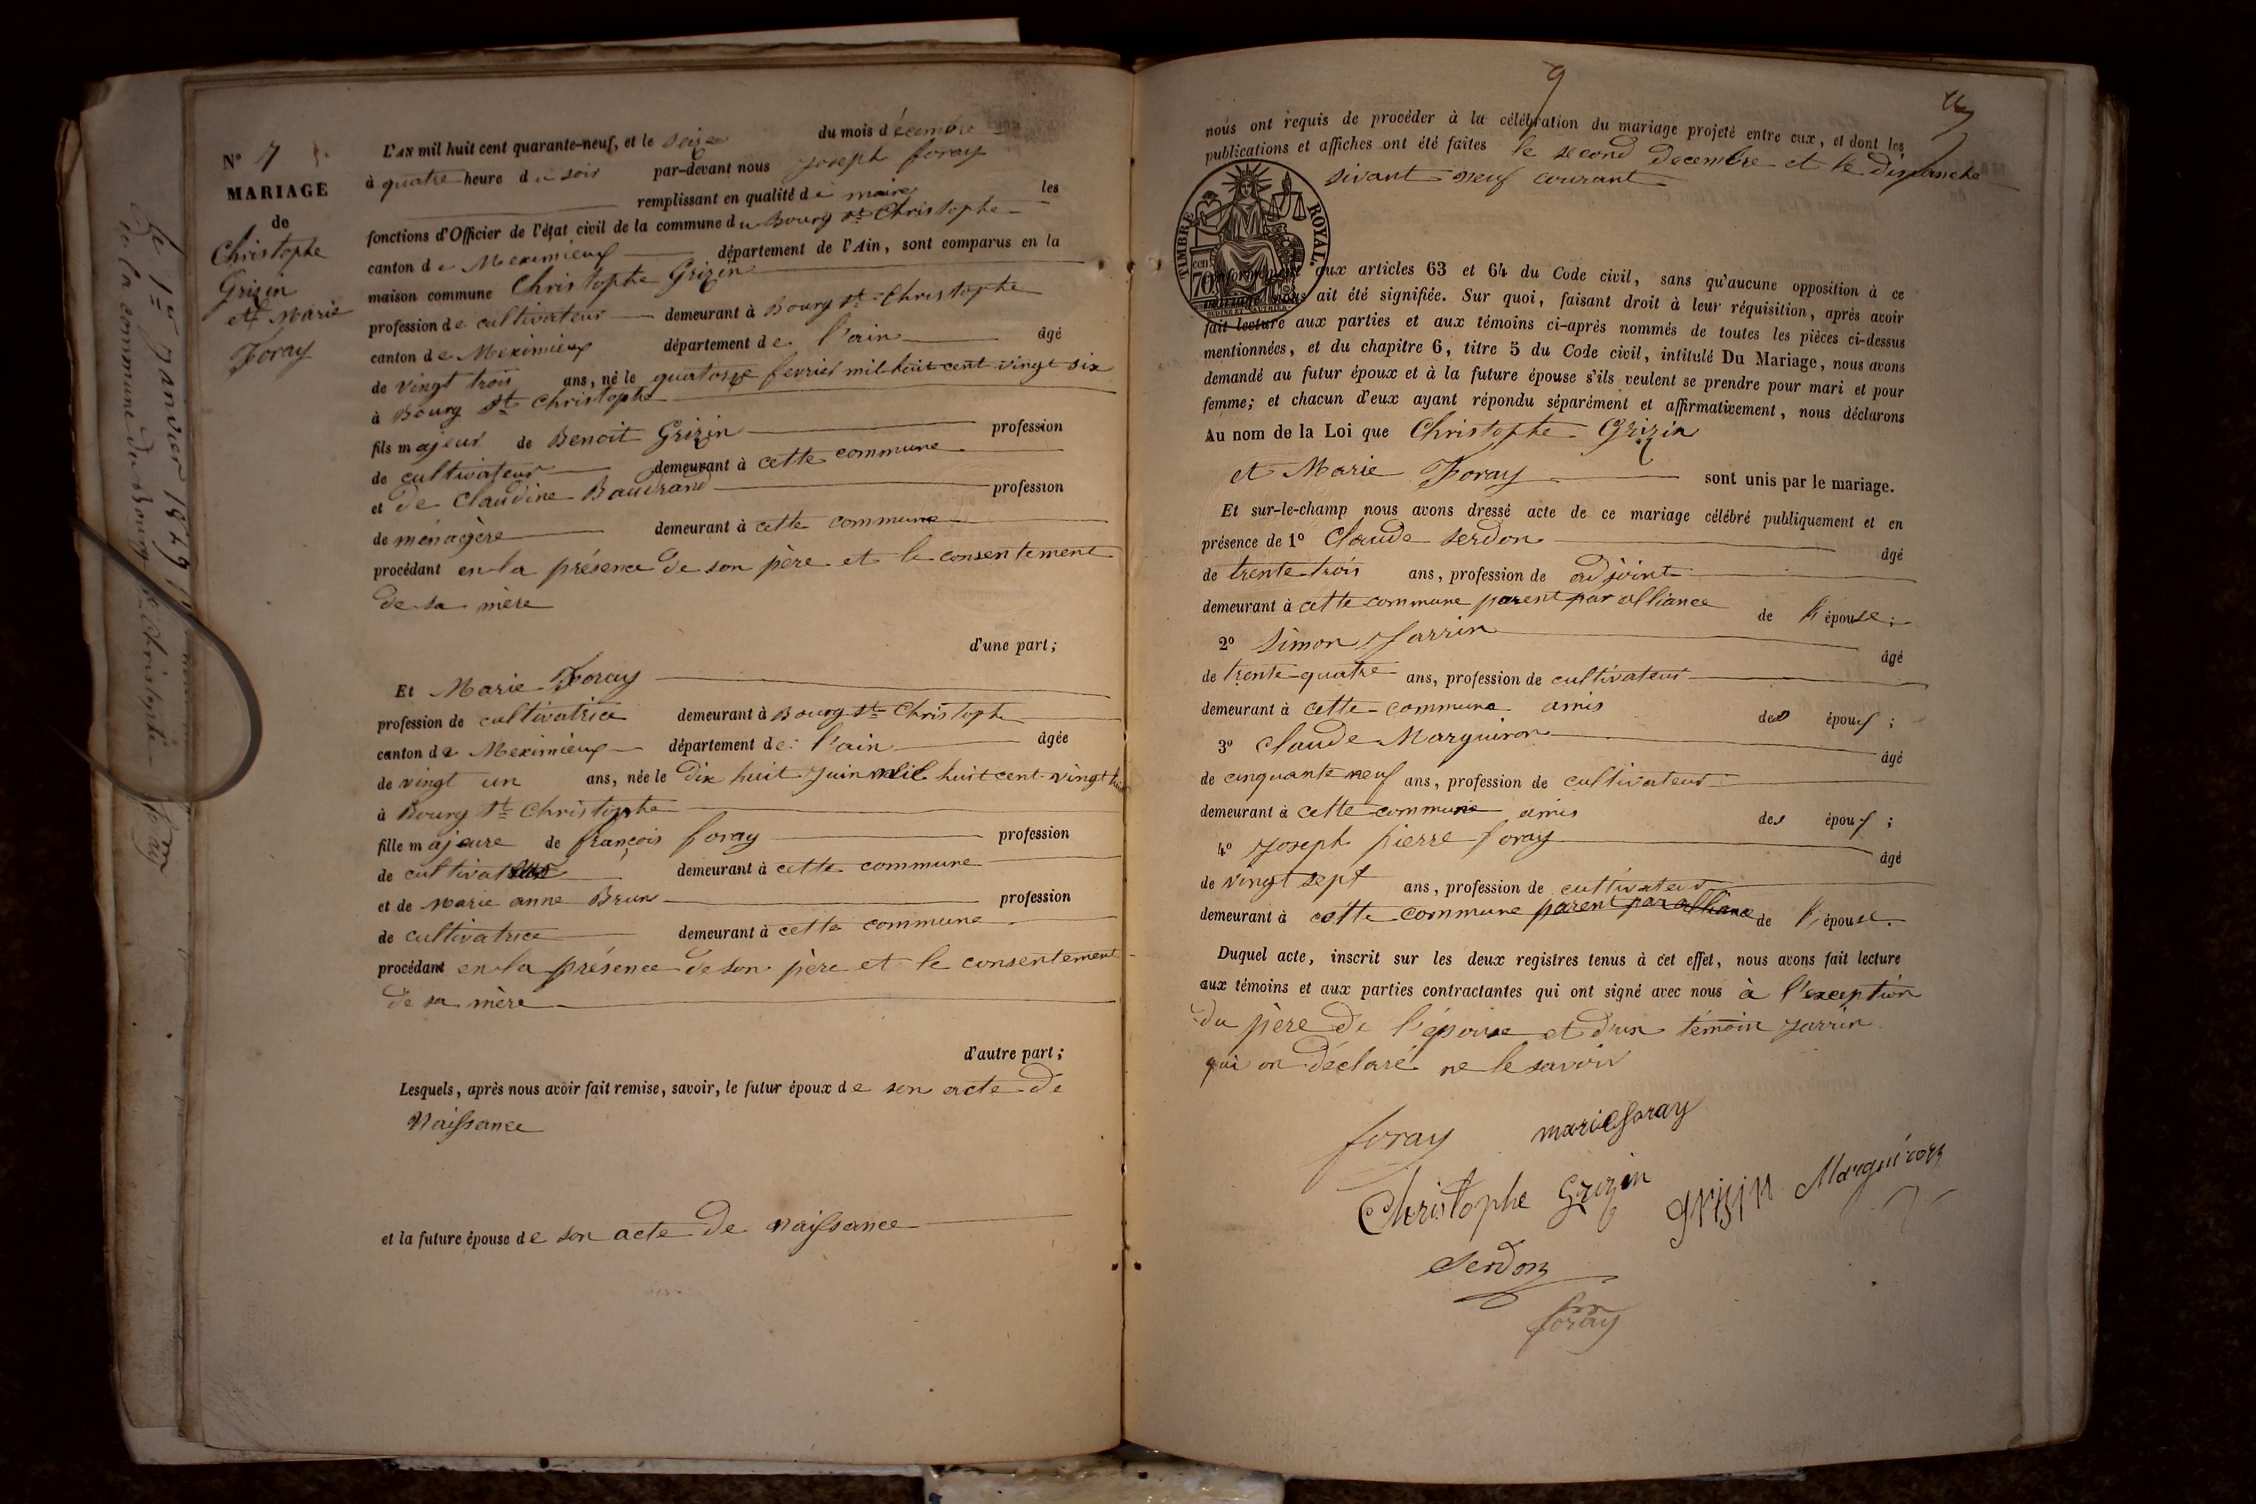 N° 7
MARIAGE
de
Christophe
Grizin
et Marie
Foray
L'AN mil huit cent quarante-neuf, et le seize du mois décembre
à quatre heure du soir par-devant nous joseph foray
remplissant en qualité de maire les
fonctions d'Officier de l'état civil de la commune du Bourg St Christophe
canton de Meximieux département de l'Ain, sont comparus en la
maison commune Christophe Grizin
profession de cultivateur demeurant à Bourg St Christophe
canton de Meximieux département de l'ain âgé
de vingt trois ans, né le quatorze fevrier mil huit cent vingt six
à Bourg St Christophe
fils majeur de Benoit Grizin profession
de cultivateur demeurant à cette commune
et de Claudine Baudrand profession
de ménagère demeurant à cette commune
procédant en la présence de son père et le consentement
de sa mère
d'une part ;
Et Marie Foray
profession de cultivatrice demeurant à Bourg St Christophe
canton de Meximieux département de l'ain âgée
de vingt un ans, née le dix huit juin mil huit cent vingt huit
à Bourg St Christophe
fille majeure de françois foray profession
de cultivateur demeurant à cette commune
et de Marie anne Brun profession
de cultivatrice demeurant à cette commune
procédant en la présence de son père et le consentement
de sa mère
d'autre part ;
Lesquels, après nous avoir fait remise, savoir, le futur époux de son acte de
Naissance
et la future épouse de son acte de naissance
Le 1er janvier 1849
de la commune du Bourg St Christophe
foray
9
nous ont requis de procéder à la célébration du mariage projeté entre eux, et dont les
publications et affiches ont été faites le second decembre et le dimanche
sivant neuf courant
TIMBRE ROYAL.
70 cen.
conformément aux articles 63 et 64 du Code civil, sans qu'aucune opposition à ce
mariage nous ait été signifiée. Sur quoi, faisant droit à leur réquisition, après avoir
fait lecture aux parties et aux témoins ci-après nommés de toutes les pièces ci-dessus
mentionnées, et du chapitre 6, titre 5 du Code civil, intitulé Du Mariage, nous avons
demandé au futur époux et à la future épouse s'ils veulent se prendre pour mari et pour
femme; et chacun d'eux ayant répondu séparément et affirmativement, nous déclarons
Au nom de la Loi que Christophe Grizin
et Marie Foray sont unis par le mariage.
Et sur-le-champ nous avons dressé acte de ce mariage célébré publiquement et en
présence de 1° Claude Serdon âgé
de trente trois ans, profession de adjoint
demeurant à cette commune parent par alliance de l'épouse ;
2° Simon Jarrin âgé
de trente quatre ans, profession de cultivateur
demeurant à cette commune amis des époux ;
3° Claude Marguiron âgé
de cinquante neuf ans, profession de cultivateur
demeurant à cette commune amis des époux ;
4° Joseph pierre foray âgé
de vingt sept ans, profession de cultivateur
demeurant à cette commune parent par alliance de l'épouse.
Duquel acte, inscrit sur les deux registres tenus à cet effet, nous avons fait lecture
aux témoins et aux parties contractantes qui ont signé avec nous à l'exception
du père de l'épouse et d'un témoin Jarrin
qui on déclaré ne le savoir
foray marie foray
Christophe Grizin grizin Marguiron
Serdon
foray